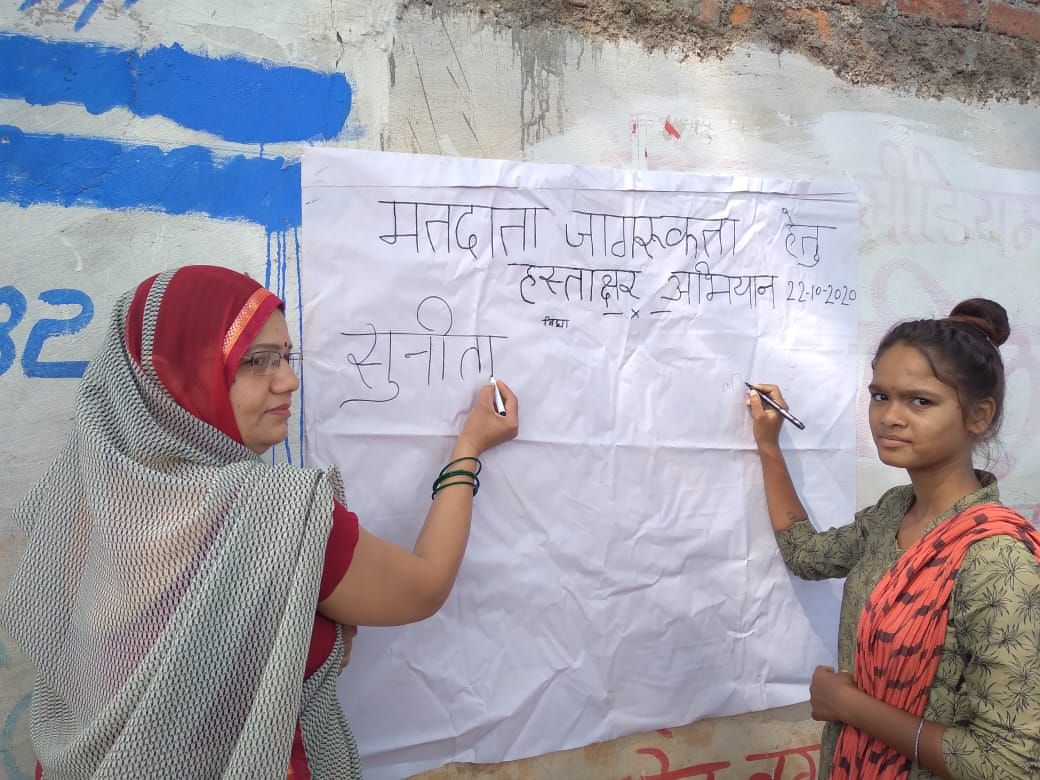 मतदाता जागरूकता हेतु
हस्ताक्षर अभियान 22-10-2020
सुनीता
मीडियम
32